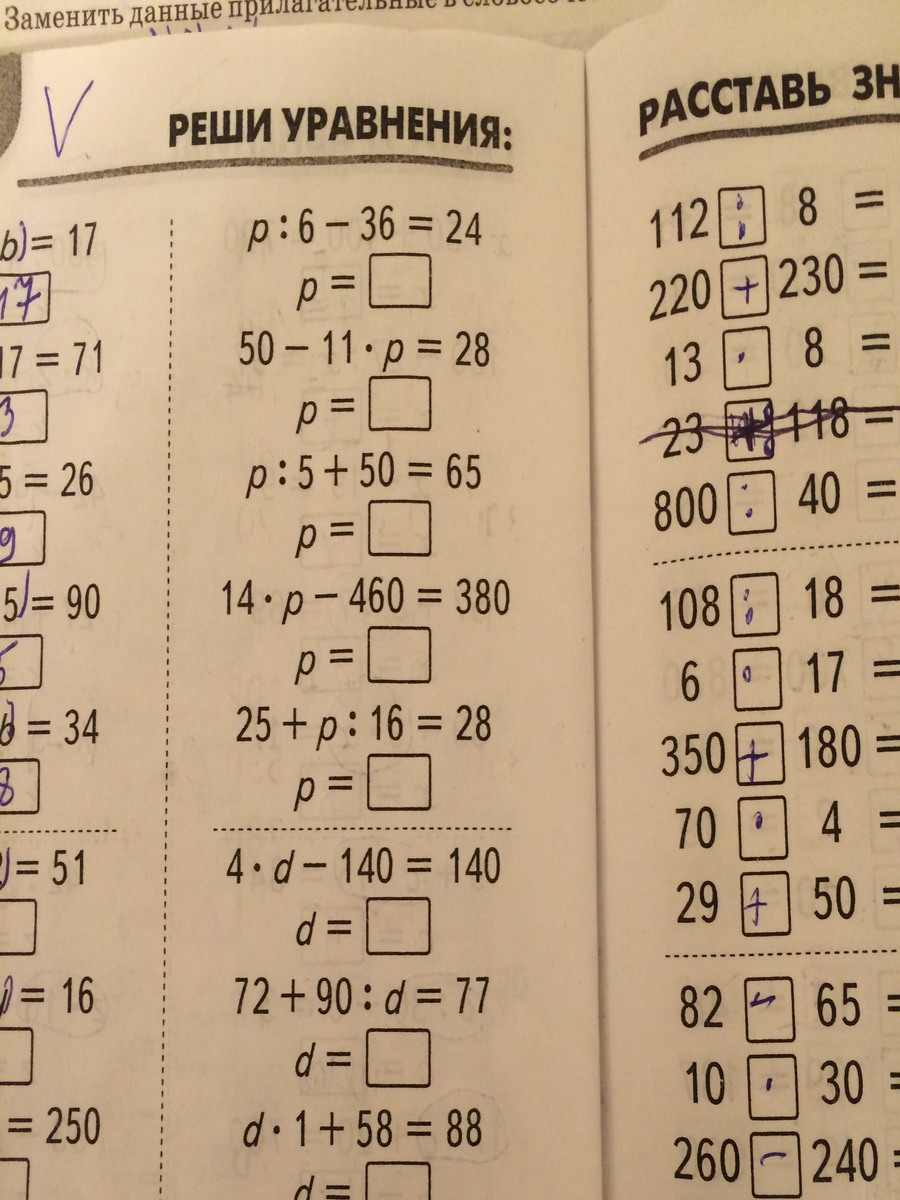 Заменить данные прилагательные в
РЕШИ УРАВНЕНИЯ:
b) = 17
17
17 = 71
3
5 = 26
9
5) = 90
5
b) = 34
8
) = 51
) = 16
= 250
p : 6 − 36 = 24
p =
50 − 11 · p = 28
p =
p : 5 + 50 = 65
p =
14 · p − 460 = 380
p =
25 + p : 16 = 28
p =
4 · d − 140 = 140
d =
72 + 90 : d = 77
d =
d · 1 + 58 = 88
d =
РАССТАВЬ ЗН
112 : 8 =
220 + 230 =
13 · 8 =
23 118 =
800 : 40 =
108 : 18 =
6 · 17 =
350 + 180 =
70 · 4 =
29 + 50 =
82 − 65 =
10 · 30 =
260 − 240 =